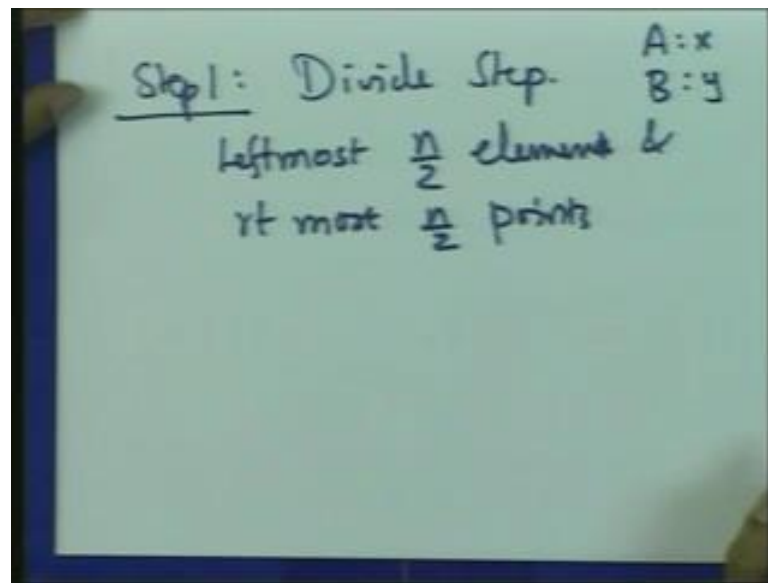 Step 1: Divide Step.
A : x
B : y
Leftmost n/2 element &
rt most n/2 points